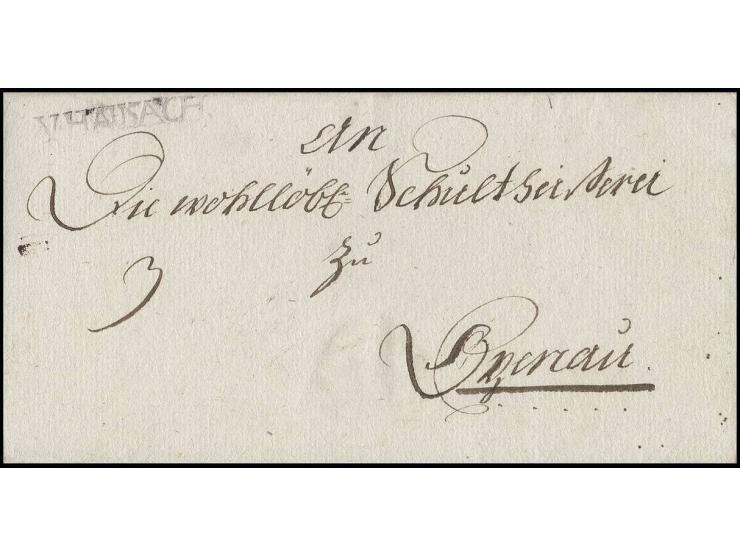 V.HAUSACH.
An
Die wohllöbl= Schultheisserei
3
zu
Oppenau.